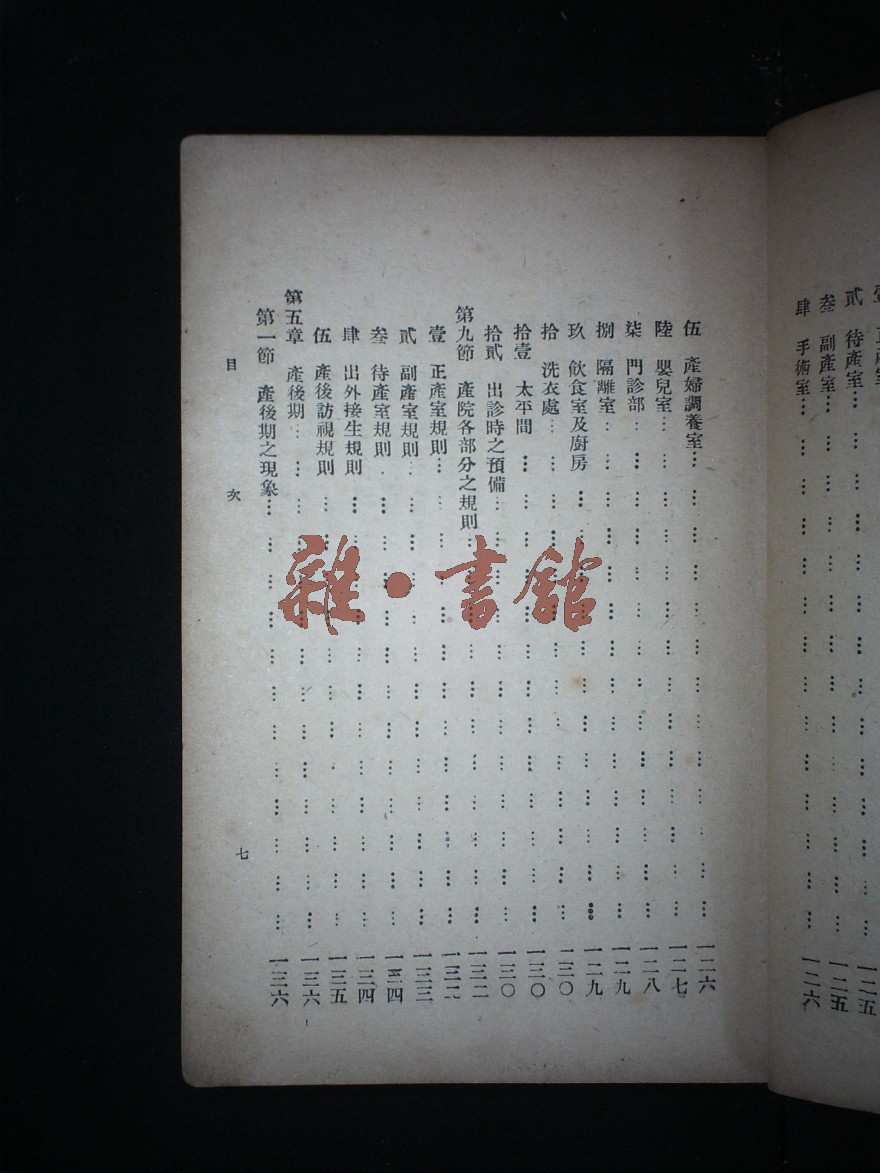 貳 待產室………一二五
叁 副產室………一二五
肆 手術室………一二六
伍 產婦調養室………一二六
陸 嬰兒室………一二七
柒 門診部………一二八
捌 隔離室………一二九
玖 飲食室及廚房………一二九
拾 洗衣處………一三〇
拾壹 太平間………一三〇
拾貳 出診時之預備………一三〇
第九節 產院各部分之規則………一三二
壹 正產室規則………一三二
貳 副產室規則………一三三
叁 待產室規則………一三四
肆 出外接生規則………一三四
伍 產後訪視規則………一三五
第五章 產後期………一三六
第一節 產後期之現象………一三六
目 次 七
雜·書館